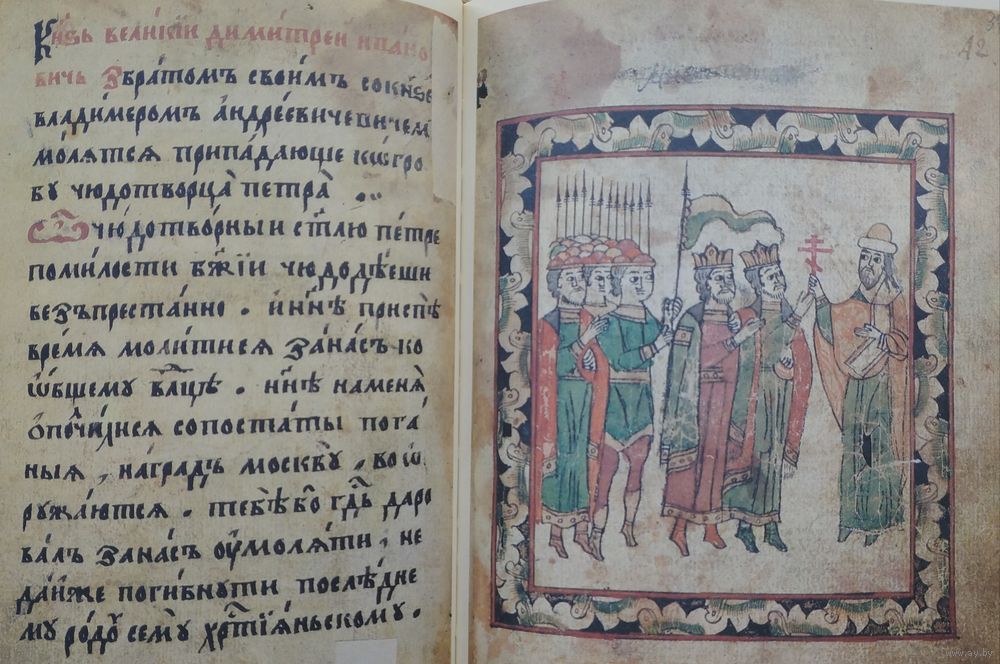 Кнѕь великїи димитреи ивано
вичь Збратомъ своимъ сокнѕе
владимеромъ андрѣевичевичем
молятся припадающе кѡгро
бу чюдотворца петра . .
Ѽ чюдотворныи стлю петре
помилости бжїи чюдодѣеши
безъпрестанно . инн҃ѣ приспѣ
время молитися Занасъ ко
ѡбщему влцѣ . нн҃ѣ наменя
ѻполчишися сопостаты пога
ныя , наградъ москву , во ѡ
ружаются . тебѣбо гдь даро
валъ Занасъ оумоляти , не
даиже погибнути послѣдне
му родо сему хртїяньскому .
42
www.ay.by